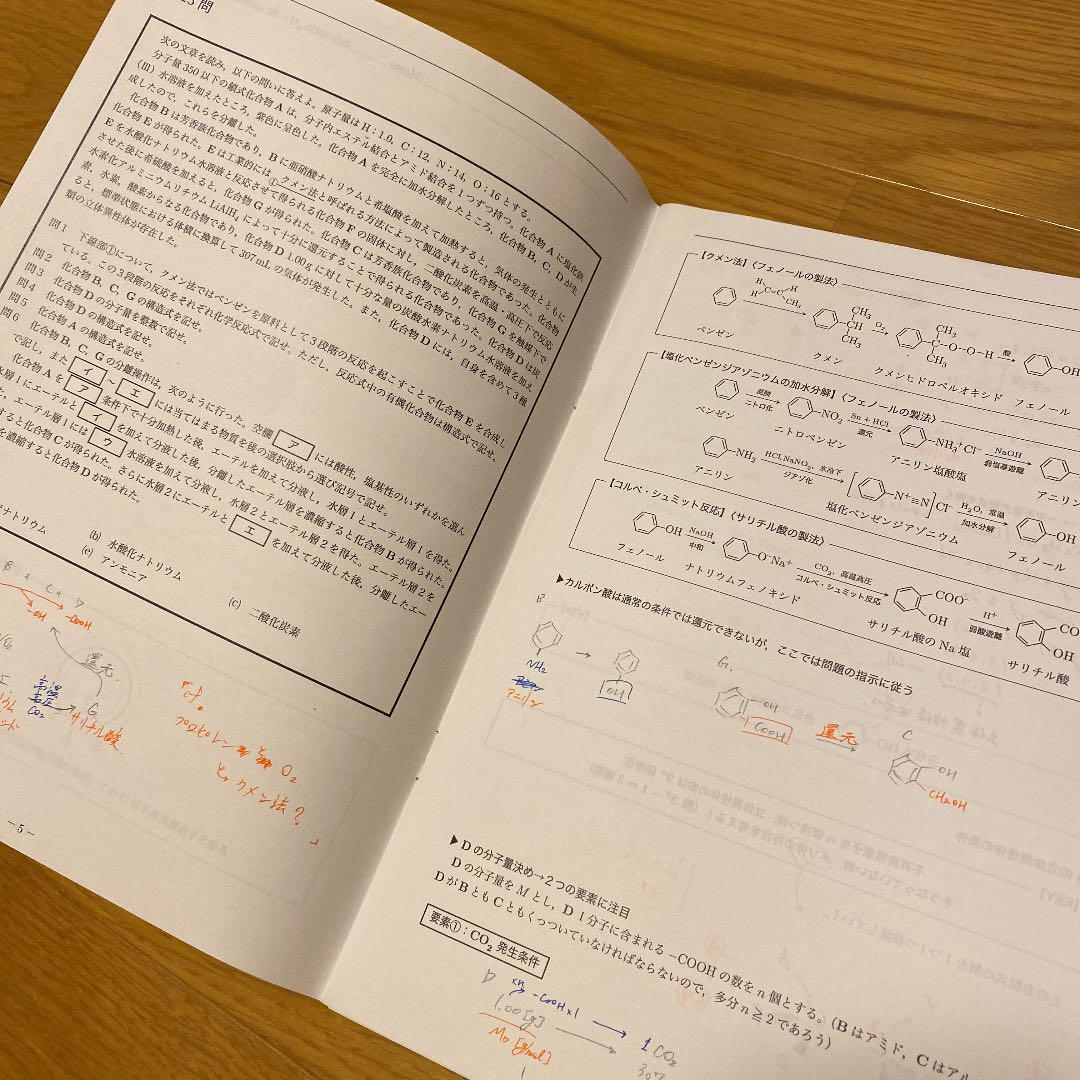 問
次の文章を読み，以下の問いに答えよ。原子量は H：1.0，C：12，N：14，O：16 とする。
分子量 350 以下の鎖式化合物 A は，分子内エステル結合とアミド結合を 1 つずつ持つ。化合物 A に塩化鉄
(III) 水溶液を加えたところ，紫色に呈色した。化合物 A を完全に加水分解したところ，化合物 B，C，D が生
成したので，これらを分離した。
化合物 B は芳香族化合物であり，B に亜硝酸ナトリウムと希塩酸を加えて加熱すると，気体の発生とともに
化合物 E が得られた。E は工業的には①クメン法と呼ばれる方法によって製造される化合物であった。化合物
E を水酸化ナトリウム水溶液と反応させて得られる化合物 F の固体に対し，二酸化炭素を高温・高圧下で反応
させた後に希硫酸を加えると，化合物 G が得られた。化合物 C は芳香族化合物であり，化合物 G を触媒下で
水素化アルミニウムリチウム LiAlH₄ によって十分に還元することで得られる化合物であった。化合物 D は炭
素，水素，酸素からなる化合物であり，化合物 D 1.00 g に対して十分な量の炭酸水素ナトリウム水溶液を加え
ると，標準状態における体積に換算して 307 mL の気体が発生した。また，化合物 D には，自身を含めて 3 種
類の立体異性体が存在した。
問1 下線部①について，クメン法ではベンゼンを原料として 3 段階の反応を起こすことで化合物 E を合成し
ている。この 3 段階の反応をそれぞれ化学反応式で記せ。ただし，反応式中の有機化合物は構造式で記せ。
問2 化合物 B，C，G の構造式を記せ。
問3 化合物 D の分子量を整数で記せ。
問4 化合物 D の構造式を記せ。
問5 化合物 A の構造式を記せ。
問6 化合物 B，C，G の分離操作は，次のように行った。空欄 ア には酸性，塩基性のいずれかを選ん
で記し，また イ ～ エ には当てはまる物質を後の選択肢から選び記号で記せ。
化合物 A を ア 条件下で十分加熱した後，エーテルを加えて分液し，水層 1 とエーテル層 1 を得た。
水層 1 にエーテルと イ を加えて分液した後，分離したエーテル層を濃縮すると化合物 B が得られた。
，エーテル層 1 には ウ 水溶液を加えて分液し，水層 2 とエーテル層 2 を得た。エーテル層 2 を
すると化合物 C が得られた。さらに水層 2 にエーテルと エ を加えて分液した後，分離したエー
を濃縮すると化合物 D が得られた。
ナトリウム (b) 水酸化ナトリウム (c) 二酸化炭素
(e) アンモニア
B + C + D
-OH -COOH
還元
高温
高圧
CO₂
G
サリチル酸
プロピレン O₂
クメン法？
-5-
【クメン法】〈フェノールの製法〉
H H
C=C
H CH₃
CH₃
CH
CH₃
O₂
CH₃
C-O-O-H
CH₃
酸
OH
ベンゼン クメン クメンヒドロペルオキシド フェノール
【塩化ベンゼンジアゾニウムの加水分解】〈フェノールの製法〉
混酸 ニトロ化 NO₂ Sn + HCl 還元 NH₃⁺Cl⁻ NaOH 弱塩基遊離
ベンゼン ニトロベンゼン アニリン塩酸塩 アニリン
NH₂ HCl,NaNO₂，氷冷下 ジアゾ化 N⁺≡N Cl⁻ H₂O，常温 加水分解 OH
アニリン 塩化ベンゼンジアゾニウム フェノール
【コルベ・シュミット反応】〈サリチル酸の製法〉
OH NaOH 中和 O⁻Na⁺ CO₂，高温高圧 コルベ・シュミット反応 COO⁻ OH H⁺ 弱酸遊離 CO OH
フェノール ナトリウムフェノキシド サリチル酸の Na 塩 サリチル酸
▶カルボン酸は通常の条件では還元できないが，ここでは問題の指示に従う
B
NH₂ → OH
アニリン
G.
OH
COOH
還元
C
OH
CH₂OH
▶D の分子量決め→2 つの要素に注目
D の分子量を M とし，D 1 分子に含まれる -COOH の数を n 個とする。(B はアミド，C はアル
D が B とも C ともくっついていなければならないので，多分 n≧2 であろう)
要素①：CO₂ 発生条件
D ×n -COOH×1 → 1 CO₂
1.00[g] → 307
M₀ [g/mol]